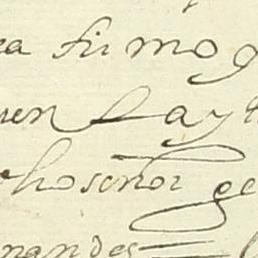 ra firmo q
uen la y
ho señor ge
nandes